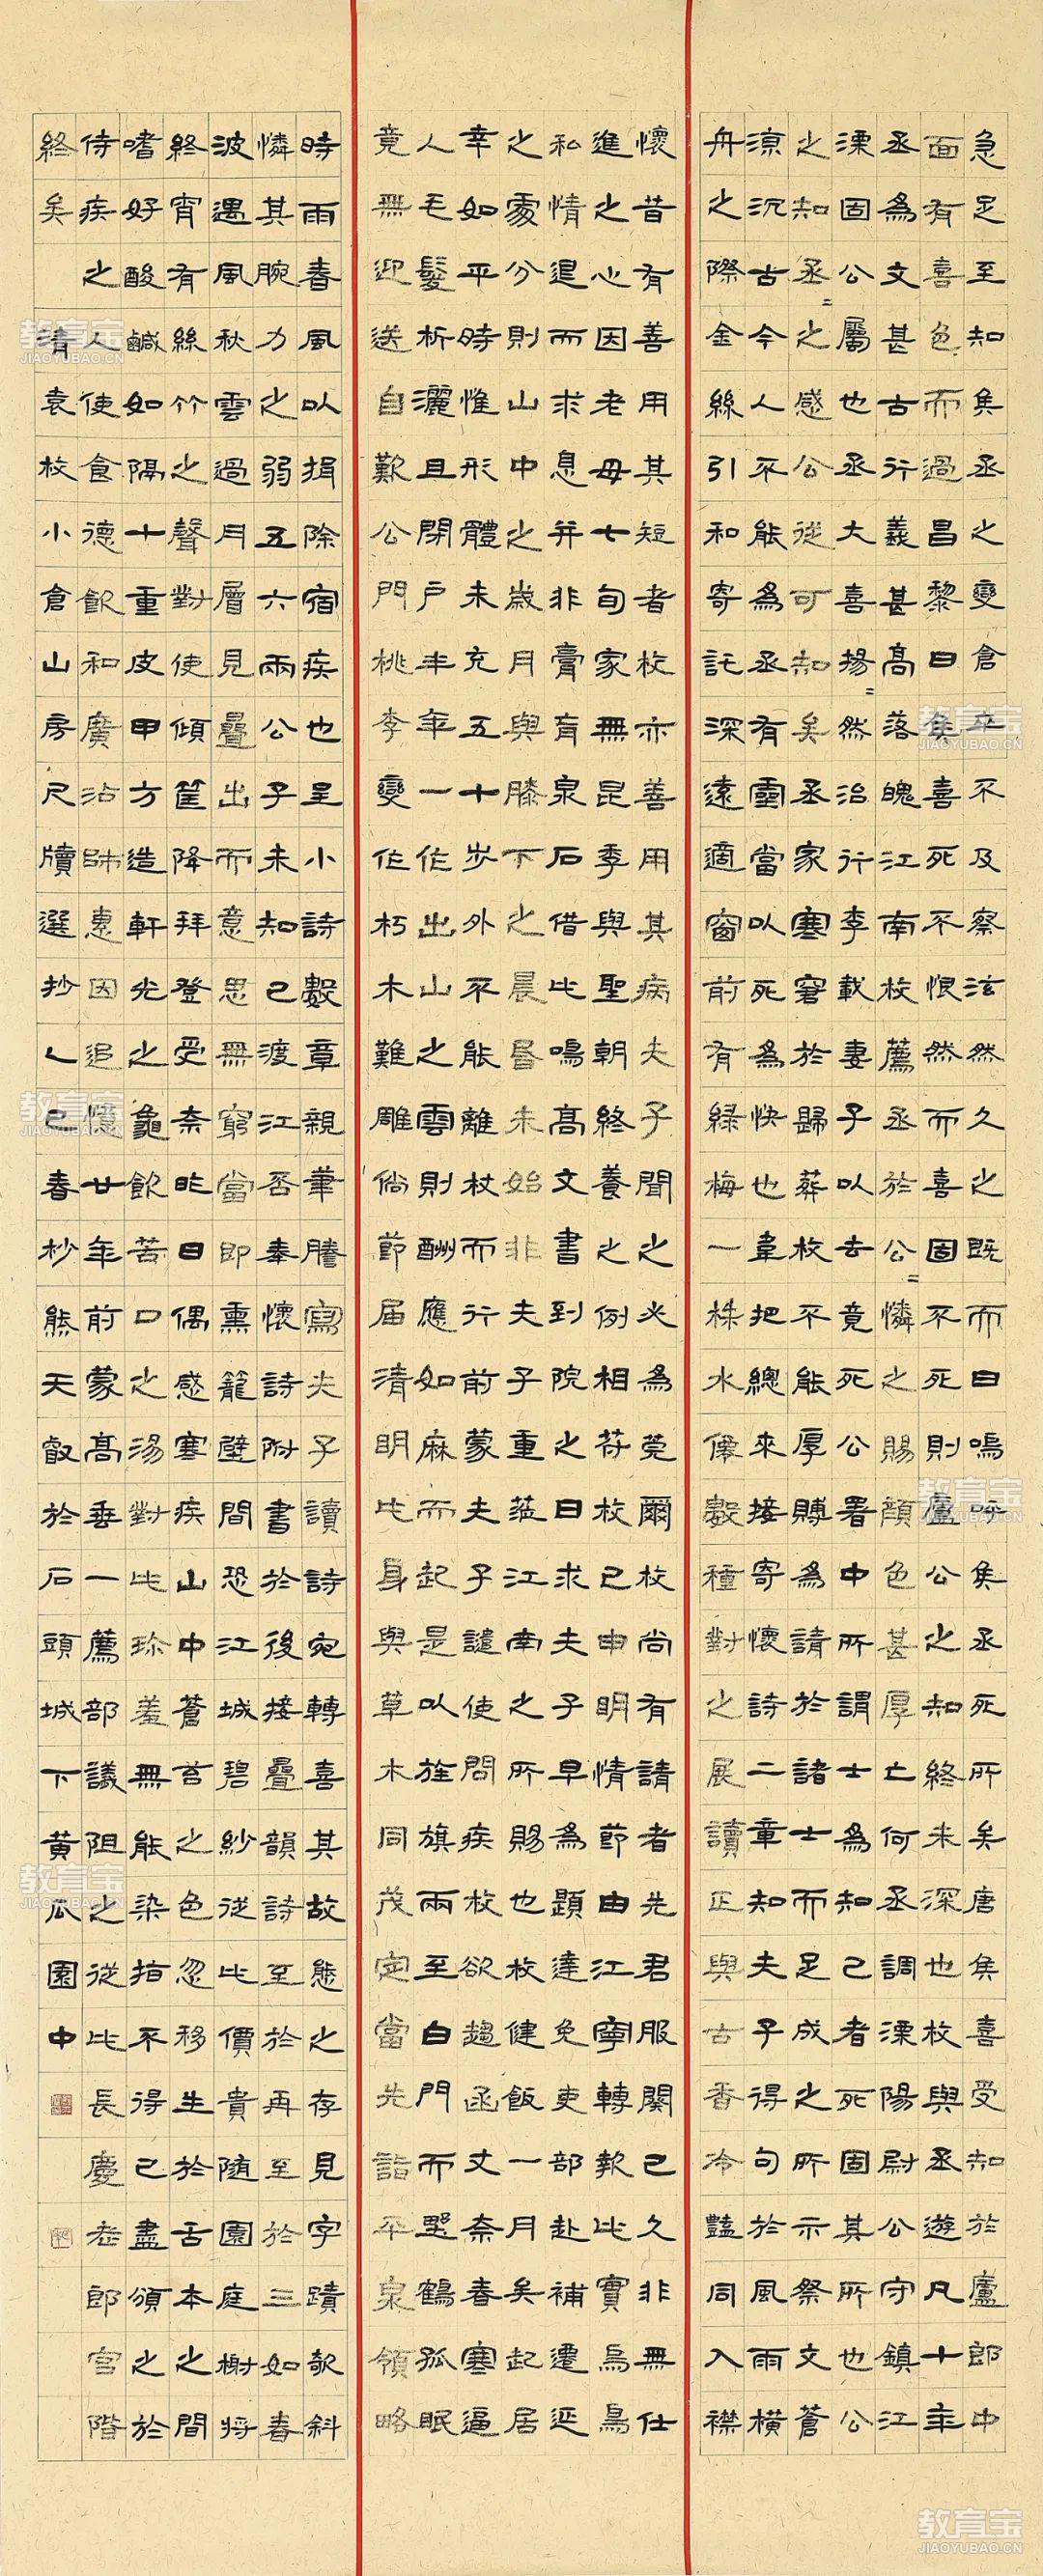 急足至知矦丞之變倉卒不及察泫然久之既而曰嗚呼矦丞死所矣唐矦喜受知於盧郎中
面有喜色而過昌黎曰矦喜死不恨然而喜固不死則盧公之知終未深也枚與丞遊凡十年
丞為文甚古行義甚高落魄江南枚薦丞於公=憐之賜顏色甚厚亡何丞調溧陽尉公守鎮江
溧固公屬也丞大喜揚=然治行李載妻子以去竟死公署中所謂士為知己者死固其所也公
之知丞=之感公從可知矣丞家寒窘於歸葬枚不能厚賻為請於諸士而足成之所示祭文蒼
涼沉古今人不能為丞有靈當以死為快也韋把總來接寄懷詩二章知夫子得句於風雨橫
舟之際金絲引和寄託深遠適窗前有綠梅一株水僊數種對之展讀正與古香冷豔同入襟
懷昔有善用其短者枚亦善用其病夫子聞之必為莞爾枚尚有請者先君服闋已久非無仕
進之心因老母七旬家無昆季與聖朝終養之例相符枚已申明情節由江寧轉報此實烏鳥
私情退而求息并非膏肓泉石借此鳴高文書到院之日求夫子早為題達免吏部赴補遷延
之處分則山中之歲月與膝下之晨昏未始非夫子重蒞江南之所賜也枚健飯一月矣起居
幸如平時惟形體未充五十步外不能離杖而行前蒙夫子譴使問疾枚欲趨函丈奈春寒逼
人毛髮析灑且閉戶半年一作出山之雲則酬應如麻而起是以旌旗兩至白門而野鶴孤眠
竟無迎送自歎公門桃李變作朽木難雕倘節届清明此身與草木同茂定當先詣平泉領略
時雨春風以捐除宿疾也呈小詩數章親筆謄寫夫子讀詩宛轉喜其故態之存見字蹟欹斜
憐其腕力之弱五六兩公子未知已渡江否奉懷詩附書於後接疊韻詩至於再至於三如春
波遇風秋雲過月層見疊出而意思無窮當即熏籠壁間恐江城碧紗從此價貴隨園庭榭將
終宵有絲竹之聲對使傾筐降拜登受奈昨日偶感寒疾山中蒼苔之色忽移生於舌本之間
嗜好酸鹹如隔十重皮甲方造軒光之龜飲苦口之湯對此珍羞無能染指不得已盡頒之於
侍疾之人使食德飲和廣沾師惠因追憶廿年前蒙高垂一薦部議阻之從此長慶老郎宮階
終矣 清袁枚小倉山房尺牘選抄乙巳春杪熊天叡於石頭城下黃瓜園中
教育宝
JIAOYUBAO.CN